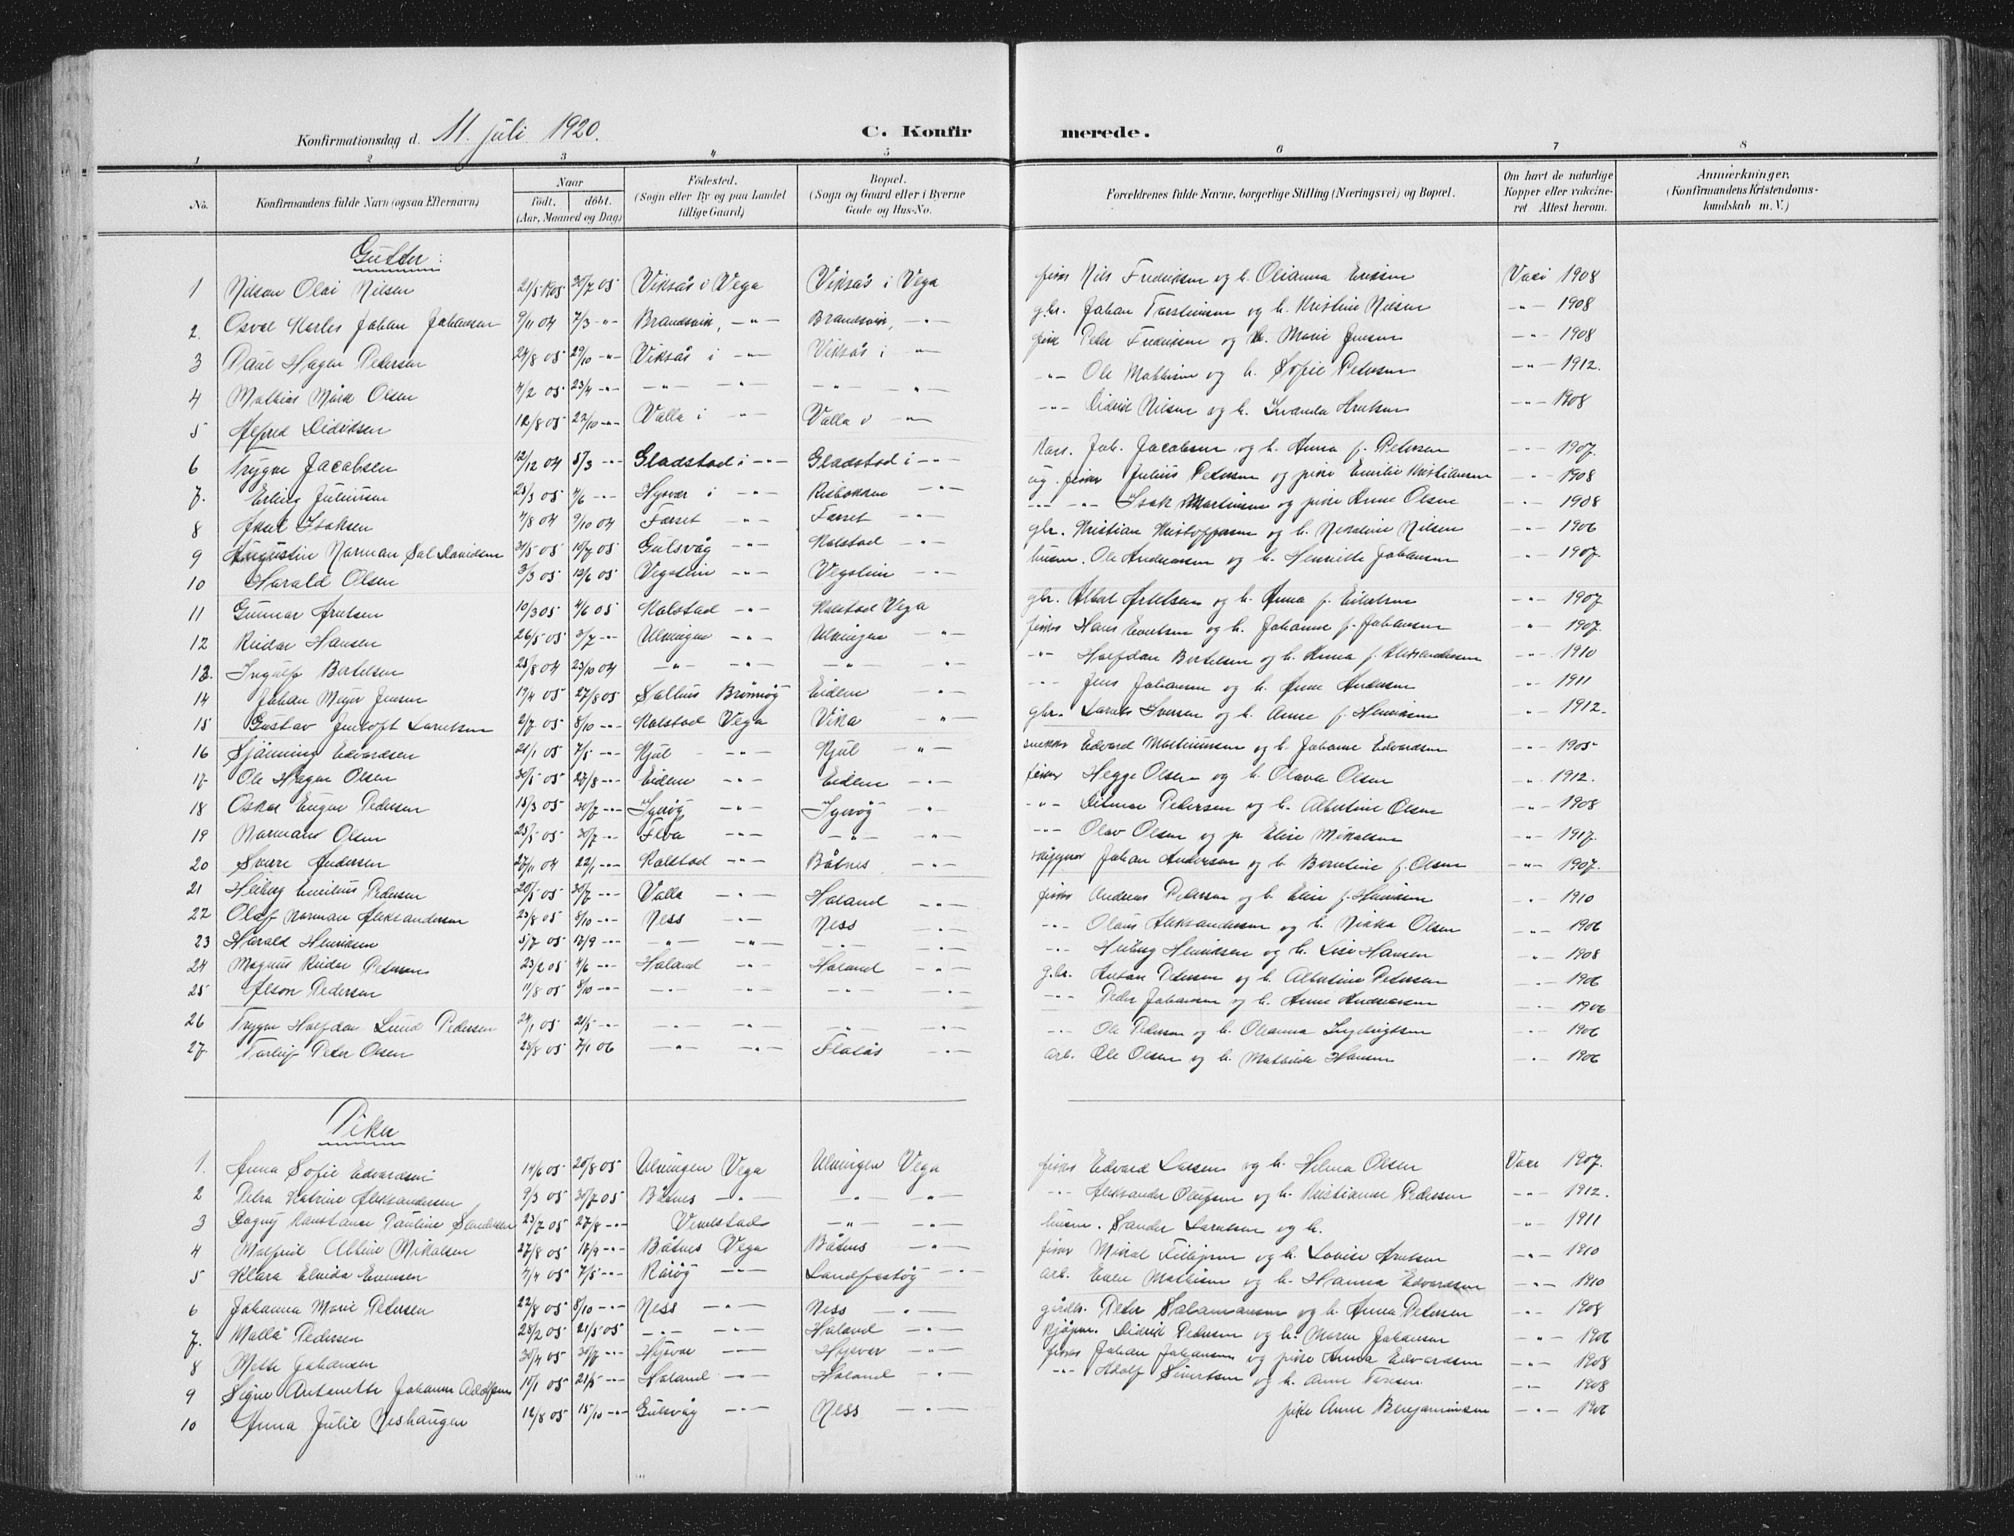 Konfirmationsdag d. 11. juli 1920. C. Konfirmerede.
1 2 3 4 5 6 7 8
No. Konfirmandens fulde Navn (ogsaa Efternavn) Naar født. døbt. (Aar, Maaned og Dag) Fødested. (Sogn eller By og paa Landet tillige Gaard) Bopæl. (Sogn og Gaard eller i Byerne Gade og Hus-No. Forældrenes fulde Navne, borgerlige Stilling (Næringsvei) og Bopæl. Om havt de naturlige Kopper eller vakcineret Attest herom. Anmærkninger. (Konfirmandens Kristendomskundskab m. V.)
Gutter:
1 Nilson Olai Nilsen 21/5 1905 30/7 05 Viksås i Vega Viksås i Vega fisker Nils Fredriksen og h. Olianna Eriksen Vaxi 1908
2. Johan Johansen 9/11 04 7/3 -"- Brandsvik, -"- Brandsvik, -"- gbr. Johan Torstensen og h. Kristine Nilsen -"- 1908
3 Paul Hagen Pedersen 24/8 05 29/10 -"- Viksås i -"- Viksås i -"- fisk Peder Fredriksen og h. Marie Jensen -"- 1908
4 Mathias Olsen 4/2 05 23/4 -"- -"- -"- -"- -"- -"- Ole Mathisen og h. Sofie Pedersen -"- 1912.
5 Alfred Didriksen 12/8 05 22/10 -"- Valla i -"- Valla i -"- -"- Didrik Nilsen og h. -"- 1908
6 Trygve Jacobsen 12/12 04 5/3 -"- Gladstad i -"- Gladstad i -"- Joh. Jacobsen og h. Anna f. Petersen -"- 1907.
7. Erling Juliussen 25/3 05 4/6 -"- Hysvær i -"- -"- ug. fisker Julius Petersen og pike Emilie Kristiansen -"- 1908
8 Isaksen 4/8 04 9/10 04 Færset -"- Færset -"- -"- -"- Isak Martinsen og pike Anne Olsen -"- 1908
9 Augustin Norman Sal Davidsen 31/5 05 10/7 05 Gulsvåg -"- Kolstad -"- gbr. Kristian Kristoffersen og h. Nikoline Nilsen -"- 1906
10 Harald Olsen 3/3 05 12/6 05 Vegstein -"- Vegstein -"- husm. Ole Andreassen og h. Henriette Johansen -"- 1907.
11 Gunnar 10/3 05 4/6 05 Kolstad -"- Kolstad Vega gbr. og h. Anna f. -"- 1907.
12 Reidar Hansen 26/5 05 3/7 -"- Ulvingen -"- Ulvingen -"- fisker Hans Evertsen og h. Johanne f. Johansen -"- 1907.
13. Ingulf Bertelsen 25/8 04 23/10 04 -"- -"- -"- -"- -"- Halfdan Bertelsen og h. Anna f. Aleksandersen -"- 1910
14 Johan Meyer Jensen 19/4 05 27/8 05 Salhus Brønnøy Eidem -"- -"- Jens Johansen og h. Anne Andersen -"- 1911
15 Gustav Larentsen 2/7 05 8/10 -"- Kolstad Vega Vika -"- gbr. Larents Iversen og h. Anne f. Henriksen -"- 1912.
16 Edvardsen 21/1 05 7/5 -"- Kjul -"- Kjul -"- snekker Edvard Mathiassen og h. Johanne Edvardsen -"- 1905
17. Ole Hagen Olsen 30/5 05 27/8 -"- Eidem -"- Eidem -"- fisker Hegge Olsen og h. Olava Olsen -"- 1912.
18 Oskar Eugen Pedersen 15/3 05 30/7 -"- -"- -"- -"- Ditmar Pedersen og h. Albertine Olsen -"- 1908
19 Normann Olsen 25/5 05 30/7 -"- Floa -"- -"- -"- -"- Olav Olsen og p. Elise Mikalsen -"- 1917.
20 Sverre Andersen 27/11 04 22/1 -"- Kolstad -"- Båtnes -"- Johan Andersen og h. Berntine f. Olsen -"- 1907.
21 Heiberg Emilius Pedersen 20/5 05 30/7 -"- Valla -"- Holand -"- fisker Andreas Pedersen og h. Elise f. Henriksen -"- 1910
22 Olaf Norman Aleksandersen 23/8 05 8/10 -"- Ness -"- Ness -"- -"- Olaus Aleksandersen og h. Nikka Olsen -"- 1906
23 Harald Henriksen 5/7 05 12/9 -"- -"- -"- -"- -"- -"- Heiberg Henriksen og h. Lise Hansen -"- 1908
24 Magnus Reidar Petersen 23/2 05 4/6 -"- Holand -"- Holand -"- gbr. Anton Petersen og h. Albertine Petersen -"- 1906
25 Alson Pedersen 11/8 05 8/10 -"- -"- -"- -"- -"- -"- Peder Johansen og h. Anne Andreassen -"- 1906
26 Trygve Halfdan Lund Pedersen 24/1 05 21/5 -"- -"- -"- -"- -"- -"- Ole Pedersen og h. Oleanna Ingebrigtsen -"- 1906
27. Torleif Peder Olsen 25/8 05 7/1 06 -"- -"- Flatås -"- arb. Ole Olsen og h. Mathilde Hansen -"- 1906
Piker
1. Anna Sofie Edvardsen 14/6 05 20/8 05 Ulvingen Vega Ulvingen Vega fisker Edvard Larsen og h. Helma Olsen Vaxi 1907.
2 Petra Katrine Aleksandersen 9/3 05 30/7 05 Båtnes -"- -"- -"- -"- Aleksander Olufsen og h. Kristianne Pedersen -"- 1912.
3 Dagny Konstanse Pauline Sandersen 23/7 05 27/8 -"- Vennestad -"- -"- husm. Sander Larentsen og h. -"- 1911
4 Malfrid Albine Mikalsen 27/8 05 18/9 -"- Båtnes Vega Båtnes -"- fisker Mikal og h. Lovise -"- 1910
5 Klara Elvida Evensen 7/4 05 7/5 -"- Rørøy -"- -"- arb. Even Mathisen og h. Hanna Edvardsen -"- 1910
6 Johanna Marie Petersen 22/8 05 8/10 -"- Ness -"- Ness -"- gårdbr. Peder Salamonsen og h. Anna Petersen -"- 1908
7. Pedersen 28/2 05 21/5 05 -"- -"- Holand -"- Didrik Pedersen og h. Maren Johansen -"- 1906
8 Mette Johansen 30/4 05 30/7 -"- Hysvær -"- Hysvær -"- fisker Johan Johansen og pike Anna Edvardsen -"- 1908
9 Signe Antonette Johanne Adolfsen 15/1 05 21/5 -"- Holand -"- Holand -"- -"- Adolf Sivertsen og h. Anne -"- 1908
10 Anna Julie Neshaugen 12/8 05 15/10 -"- Gulsvåg -"- Ness -"- pike Anne Benjaminsen -"- 1906